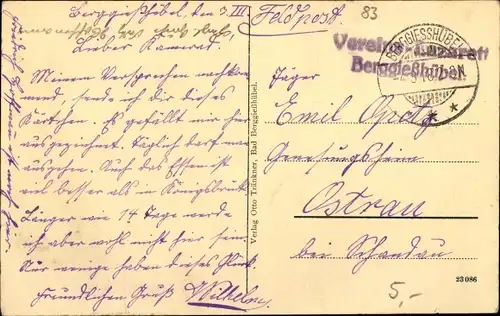 Berggießhübel, den 3. III
Lieber Kamerad.
Meinem Versprechen nachkom-
mend, sende ich dir dieses
Kärtchen. Es gefällt mir hier
ausgezeichnet. Täglich darf man
ausgehen. Auch das Essen ist
viel besser als in Königsbrück.
Länger wie 14 Tage werde
ich aber wohl nicht hier sein.
Nur wenige haben dieses Glück.
Freundlichen Gruß Wilhelm
Verlag Otto Tränkner, Bad Berggießhübel.
Feldpost.
83
BERGGIESSHÜBEL
Vereins-Lazarett
Berggießhübel.
Jäger
Emil Opitz
Genesungsheim
Ostrau
bei Schandau
23086
5,-